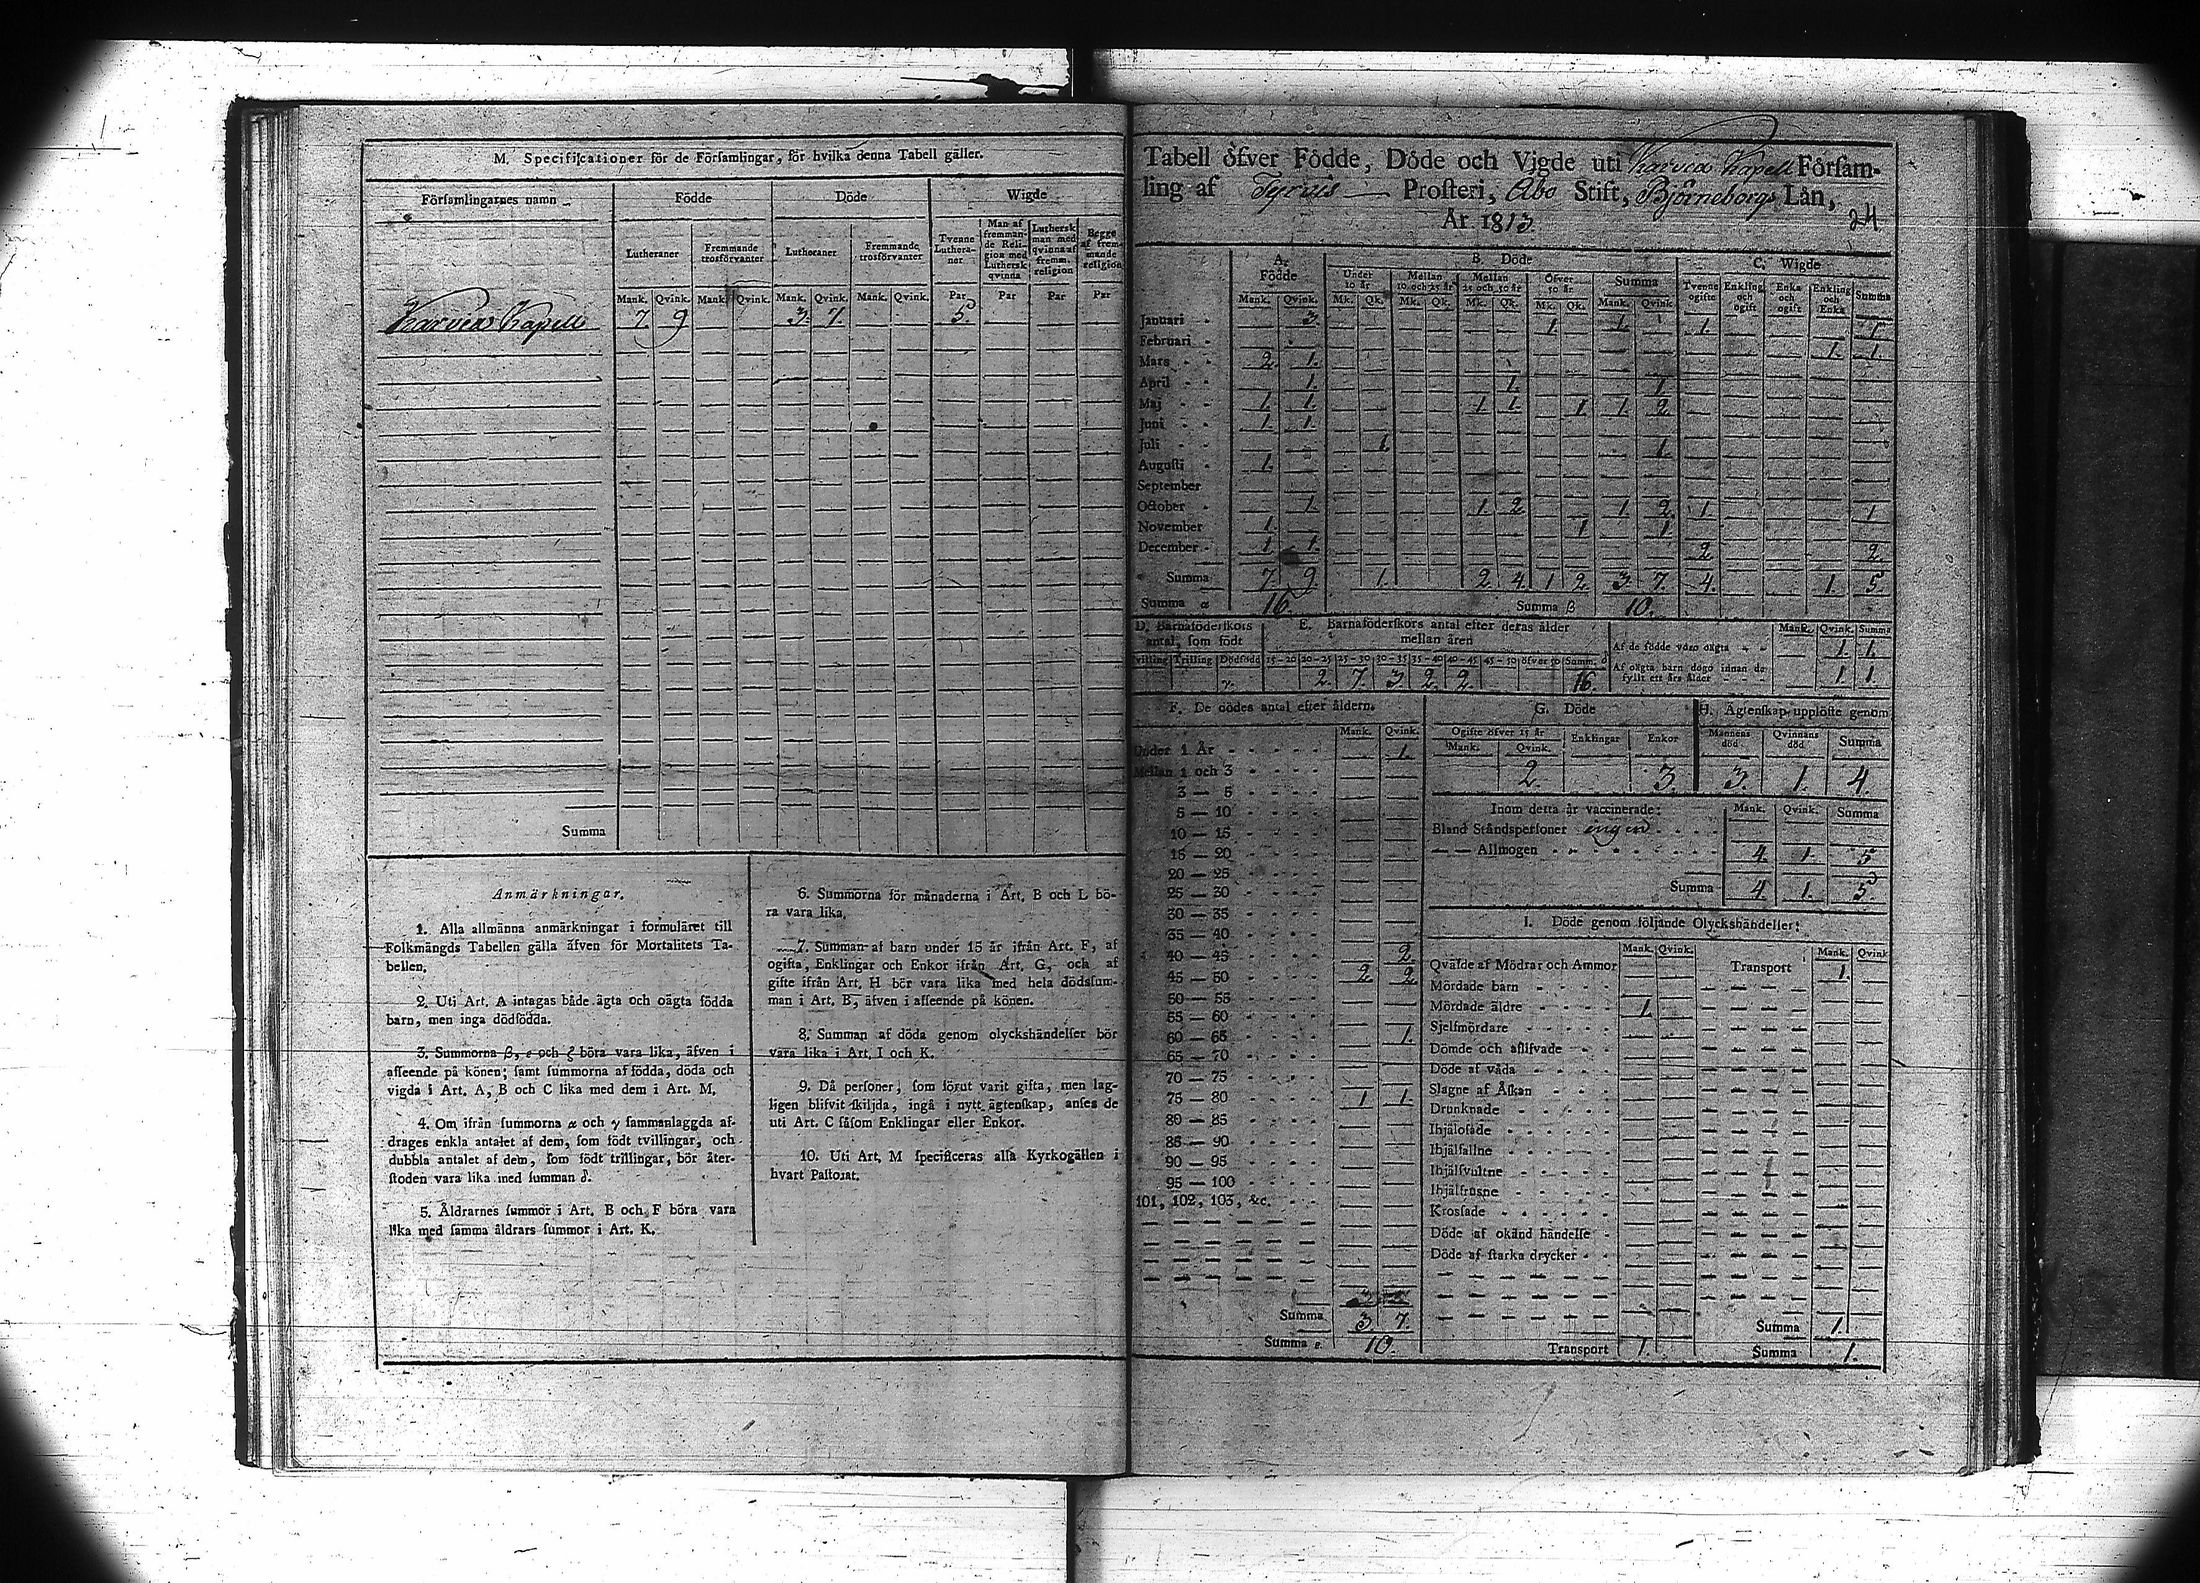 M. Specificationer för de Församlingar, för hvilka denna Tabell gäller.
Församlingarnes namn Födde Döde Wigde
Lutheraner Fremmande trosförvanter Lutheraner Fremmande trosförvanter Tvenne Lutheraner Man af fremmande Religion med Luthersk qvinna Luthersk man med qvinna af fremm. religion Begge af fremmande religion
Mank. Qvink. Mank. Qvink. Mank. Qvink. Mank. Qvink. Par Par Par Par
Karvia Kapell 7. 9 3. 7. 5.
Summa
Anmärkningar.
1. Alla allmänna anmärkningar i formuläret till
Folkmängds Tabellen gälla äfven för Mortalitets Ta-
bellen.
2. Uti Art. A intagas både ägta och oägta födda
barn, men inga dödfödda.
3. Summorna β, ε och ξ böra vara lika, äfven i
afseende på könen; samt summorna af födda, döda och
vigda i Art. A, B och C lika med dem i Art. M.
4. Om ifrån summorna α och γ sammanlaggda af-
drages enkla antalet af dem, som födt tvillingar, och
dubbla antalet af dem, som födt trillingar, bör åter-
stoden vara lika med summan δ.
5. Åldrarnes summor i Art. B och F böra vara
lika med samma åldrars summor i Art. K.
6. Summorna för månaderna i Art. B och L bö-
ra vara lika.
7. Summan af barn under 15 år ifrån Art. F, af
ogifta, Enklingar och Enkor ifrån Art. G, och af
gifte ifrån Art. H bör vara lika med hela dödssum-
man i Art. B, äfven i afseende på könen.
8. Summan af döda genom olyckshändelser bör
vara lika i Art. I och K.
9. Då personer, som förut varit gifta, men lag-
ligen blifvit skiljda, ingå i nytt ägtenskap, anses de
uti Art. C såsom Enklingar eller Enkor.
10. Uti Art. M specificeras alla Kyrkogällen i
hvart Pastorat.
Tabell öfver Födde, Döde och Vigde uti Karvia Kapell Försam-
ling af Tyrvis Prosteri, Åbo Stift, Björneborgs Län,
År 1813. 24
A. Födde B. Döde C. Wigde
Under 10 år Mellan 10 och 25 år Mellan 25 och 50 år Öfver 50 år Summa Tvenne ogifte Enkling och ogift Enka och ogift Enkling och Enka Summa
Mank. Qvink. Mk. Qk. Mk. Qk. Mk. Qk. Mk. Qk. Mank. Qvink.
Januari 3. 1. 1. 1. 1.
Februari 1. 1.
Mars 2. 1.
April 1. 1. 1.
Maj 1. 1. 1. 1. 1 1. 2.
Juni 1. 1.
Juli 1. 1.
Augusti 1.
September
October 1. 1. 2. 1. 2. 1. 1.
November 1. 1 1
December 1. 1. 2. 2.
Summa 7. 9. 1. 2. 4. 1 2. 3. 7. 4. 1. 5.
Summa α 16. Summa β 10.
D. Barnaföderskors antal, som födt E. Barnaföderskors antal efter deras ålder mellan åren Mank. Qvink. Summa
Af de födde voro oägta 1. 1.
Tvilling Trilling Dödfödd 15-20 20-25 25-30 30-35 35-40 40-45 45-50 öfver 50 Summ. δ
Af oägta barn dogo innan de fyllt ett års ålder 1 1.
γ. 2. 7. 3. 2. 2. 16.
F. De dödes antal efter åldern.
Mank. Qvink.
Under 1 År 1.
Mellan 1 och 3
3 — 5
5 — 10
10 — 15
15 — 20
20 — 25
25 — 30
30 — 35
35 — 40
40 — 45 2.
45 — 50 2. 2.
50 — 55
55 — 60
60 — 65 1.
65 — 70
70 — 75
75 — 80 1 1.
80 — 85
85 — 90
90 — 95
95 — 100
101, 102, 103, &c.
Summa 3. 7.
Summa ε 10.
G. Döde
Ogifte öfver 15 år Enklingar Enkor
Mank. Qvink.
2. 3.
H. Ägtenskap upplöste genom
Mannens död Qvinnans död Summa
3. 1. 4.
Inom detta år vaccinerade: Mank. Qvink. Summa
Bland Ståndspersoner ingen
— — Allmogen 4. 1. 5
Summa 4. 1. 5.
I. Döde genom följande Olyckshändelser:
Mank. Qvink. Mank. Qvink
Qväfde af Mödrar och Ammor Transport 1.
Mördade barn
Mördade äldre 1.
Sjelfmördare
Dömde och aflifvade
Döde af våda
Slagne af Åskan
Drunknade
Ihjälosade
Ihjälfallne
Ihjälsvultne
Ihjälfrusne
Krossade
Döde af okänd händelse
Döde af starka drycker
Summa 1.
Transport 1. Summa 1.